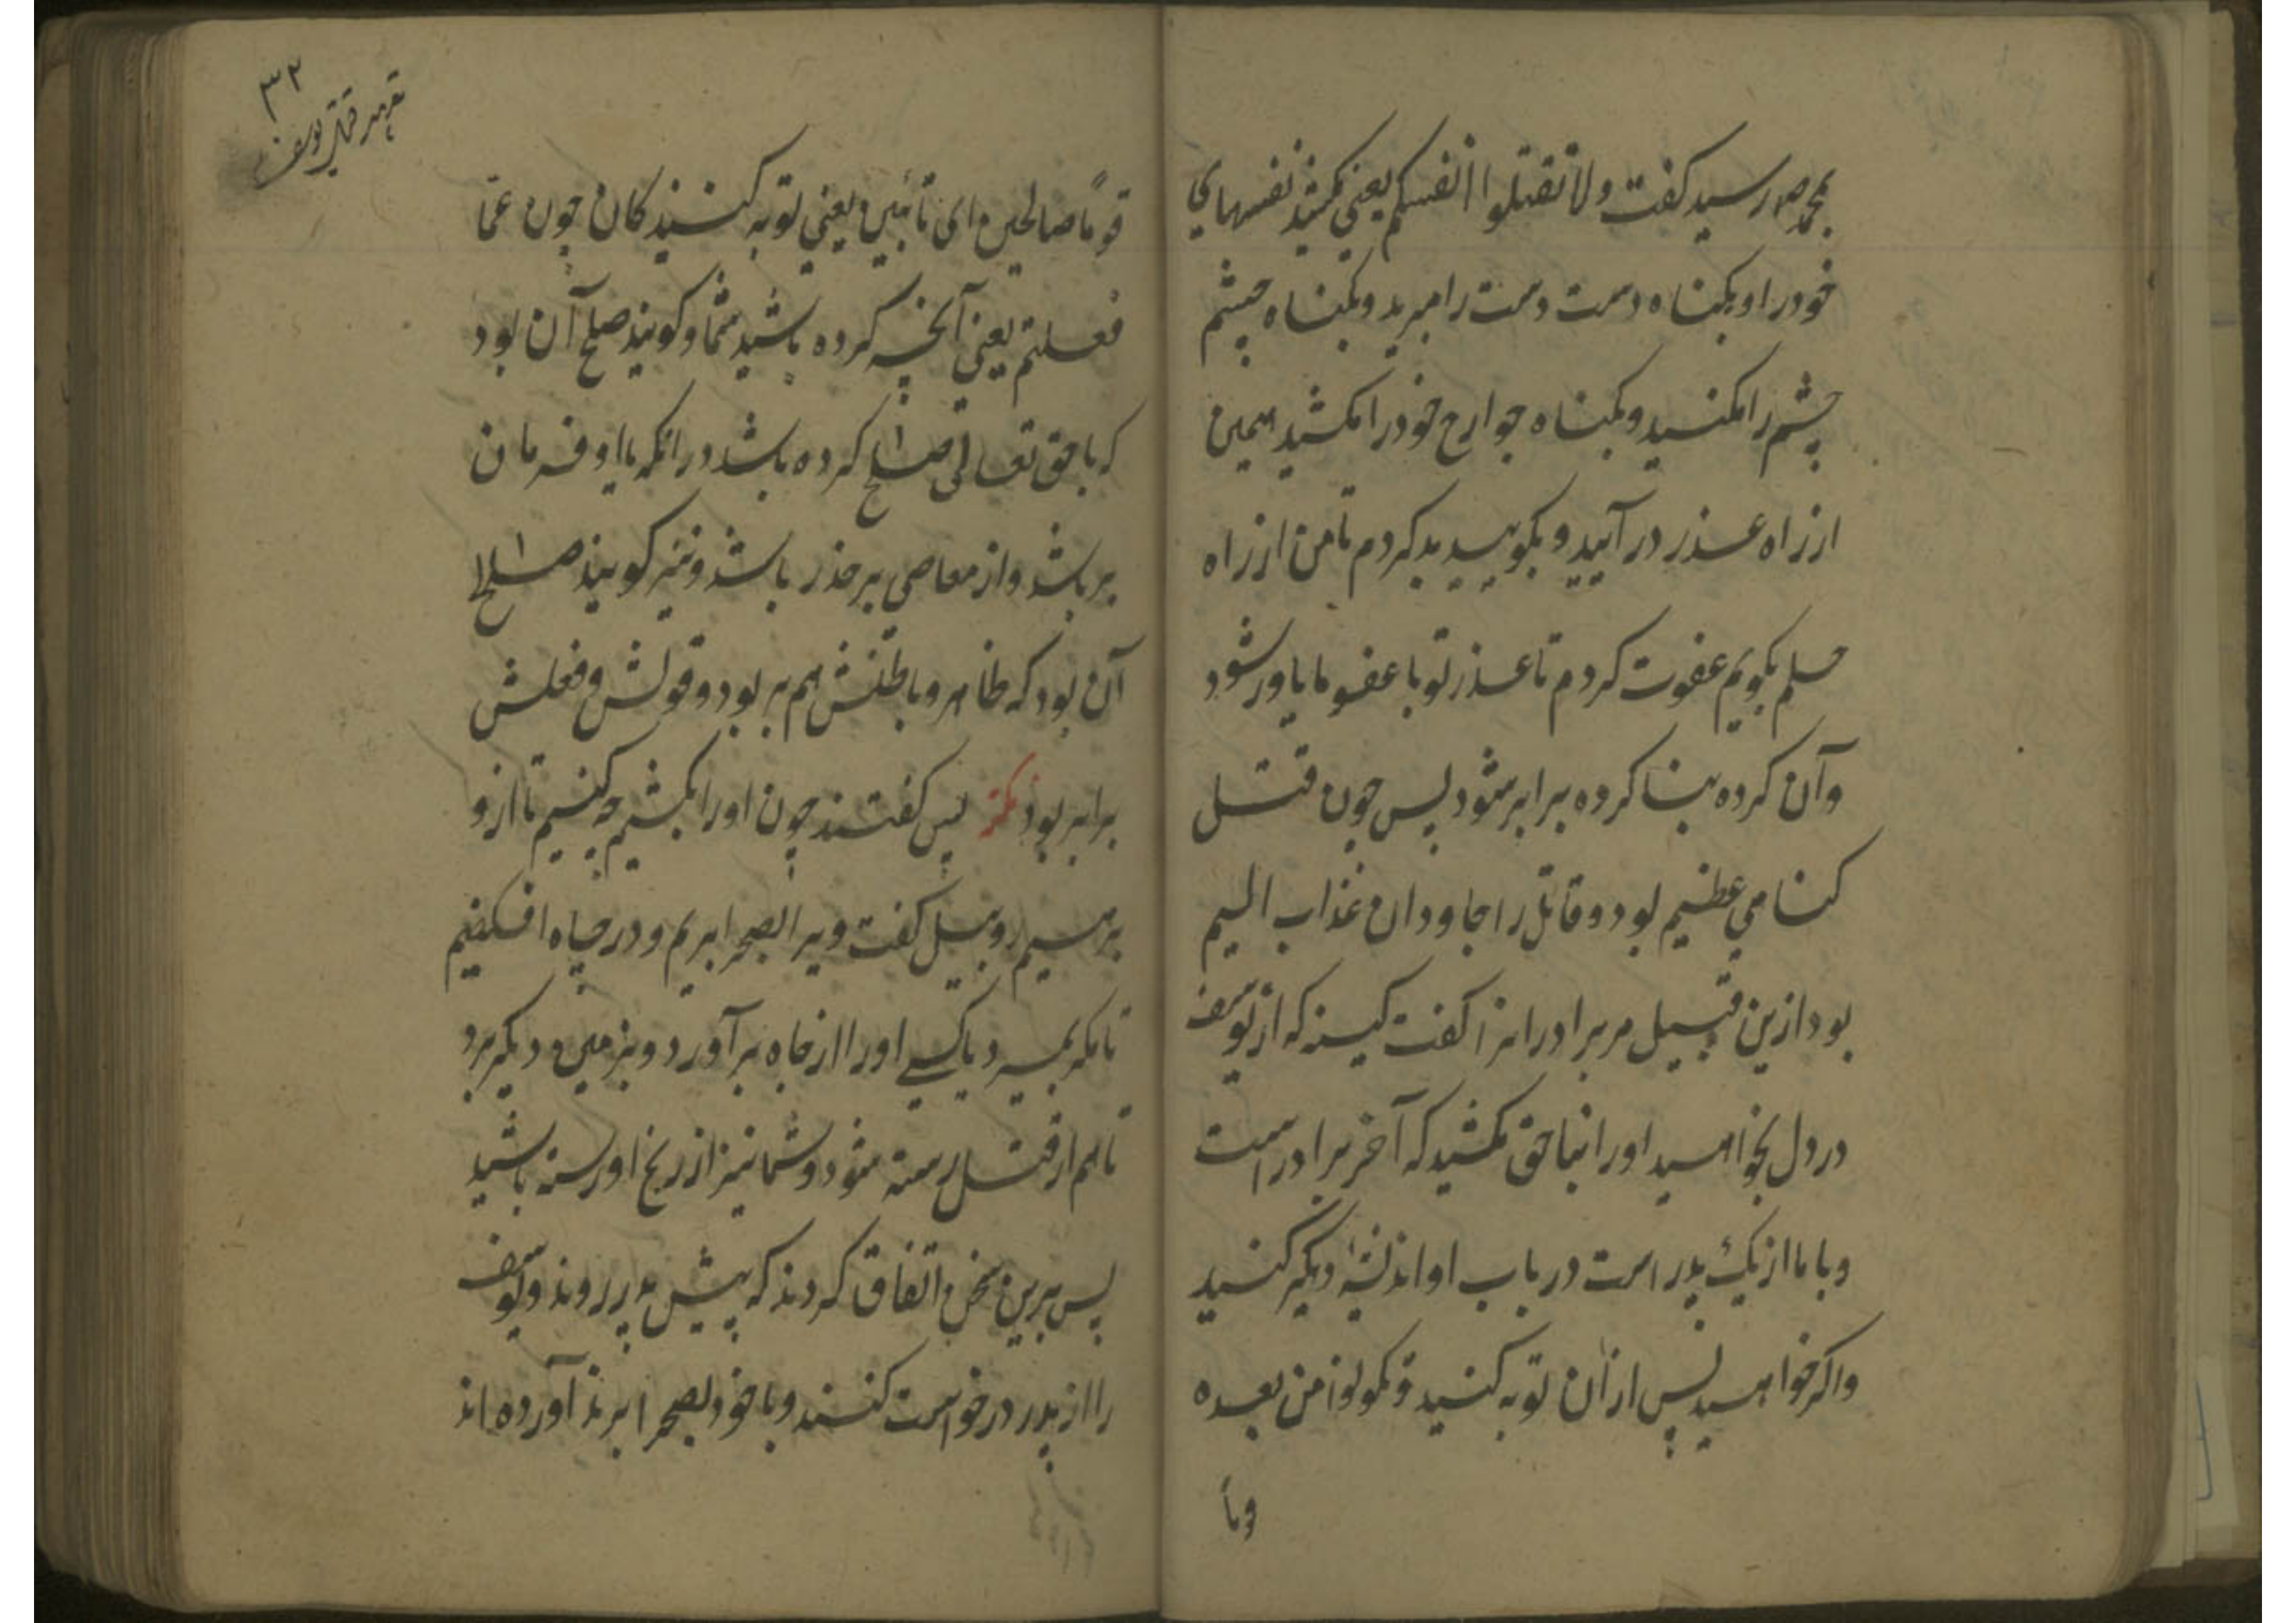 بمحمد صلم رسید کفت ولا تقتلوا انفسکم یعنی مکشید نفسهای
خود را و بکناه دست دست را مبرید و بکناه چشم
چشم را مکنید و بکناه جوارح خود را مکشید همین
از راه عذر در آیید و بکویید بد کردم تا من از راه
حلم بکویم عفوت کردم تا عذر تو با عفو ما یاور شود
وآن کرده بنا کرده برابر شود پس چون قتل
کناهی عظیم بود و قاتل را جاودان عذاب الیم
بود ازین قبیل مر برادرانرا کفت کینه که از یوسف
در دل بخواهید او را بناحق مکشید که آخر برادر است
و با ما از یک پدر است در باب او اندیشهٔ دیکر کنید
واکر خواهید پس از آن توبه کنید وتکونوا من بعده
وما
۳۲
قوماً صالحین ای تائبین یعنی توبه کنید کان چون عمّا
فعلتم یعنی آنچه کرده باشید شما و کویند صلح آن بود
که با حق تعالی صلح کرده باشد در آنکه با او فرمان
بر باشد و از معاصی بر حذر باشد و نیز کویند صلح
آن بود که ظاهر و باطنش هم بر بود و قولش و فعلش
برابر بود نکته پس کفتند چون او را نکشیم چه کنیم تا ازو
برهیم روبیل کفت ویرا بصحرا بریم و در چاه افکنیم
تا مکر بمیرد یا کسی او را از چاه برآورد و بزمین دیکر برد
تا هم از قتل رسته شود و شما نیز از رنج او رسته باشید
پس برین سخن اتفاق کردند که پیش پدر روند و یوسف
را از پدر درخواست کنند و با خود بصحرا برند آورده اند